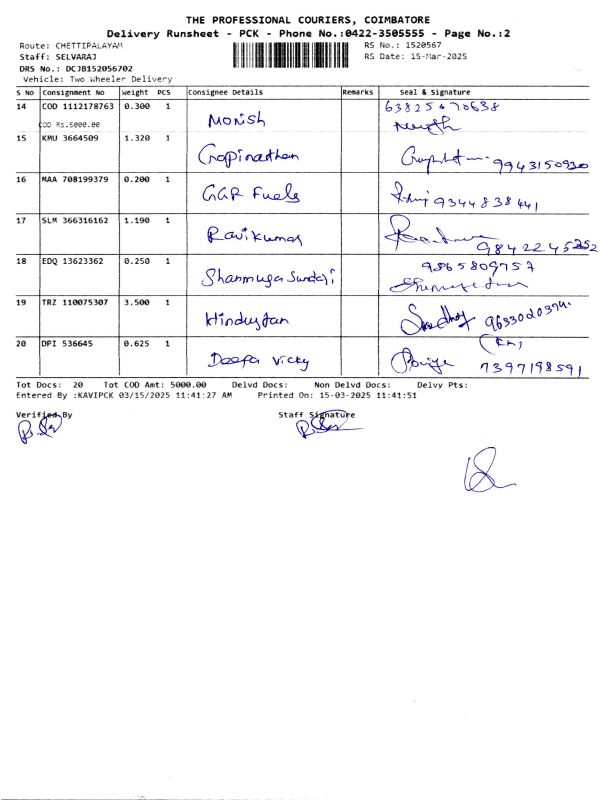 THE PROFESSIONAL COURIERS, COIMBATORE
Delivery Runsheet - PCK - Phone No.:0422-3505555 - Page No.:2
Route: CHETTIPALAYAM
Staff: SELVARAJ
DRS No.: DCJB152056702
Vehicle: Two Wheeler Delivery
RS No.: 1520567
RS Date: 15-Mar-2025
S No Consignment No Weight PCS Consignee Details Remarks Seal & Signature
14 COD 1112178763 0.300 1 Monish
COD Rs.5000.00
15 KMU 3664509 1.320 1 Gopinathan 9943150930
16 MAA 708199379 0.200 1 GGR Fuels 9344838441
17 SLM 366316162 1.190 1 Ravikumar 9842245252
18 EDQ 13623362 0.250 1 Shanmuga Sundari 9865809757
19 TRZ 110075307 3.500 1 Hindustan
20 DPI 536645 0.625 1 Deepa Vicky 7397198591
Tot Docs: 20 Tot COD Amt: 5000.00 Delvd Docs: Non Delvd Docs: Delvy Pts:
Entered By :KAVIPCK 03/15/2025 11:41:27 AM Printed On: 15-03-2025 11:41:51
Verified By Staff Signature